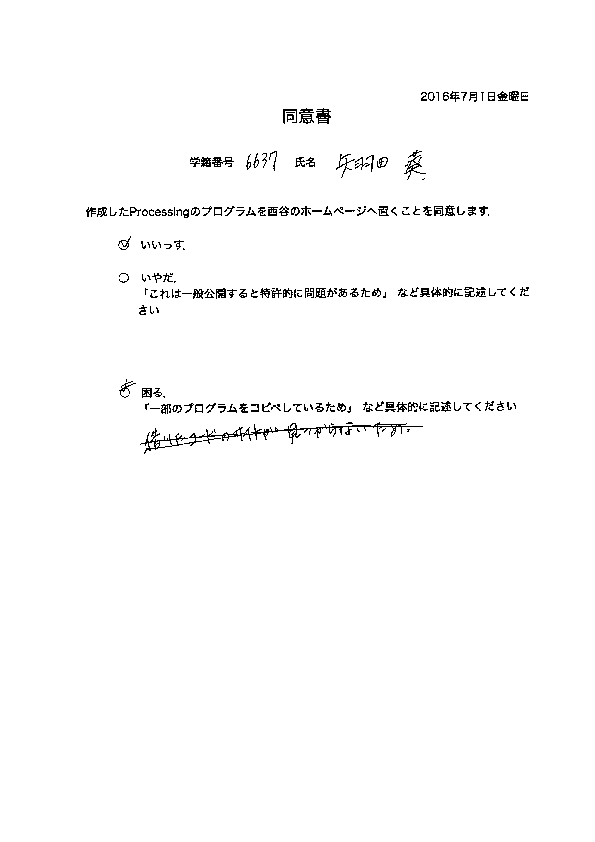 2016年7月1日金曜日
同意書
学籍番号 6637 氏名 矢羽田 葵
作成したProcessingのプログラムを西谷のホームページへ置くことを同意します.
いいっす.
いやだ.
「これは一般公開すると特許的に問題があるため」 など具体的に記述してくだ
さい
困る.
「一部のプログラムをコピペしているため」 など具体的に記述してください
借りたコードのサイトが見つからないため.